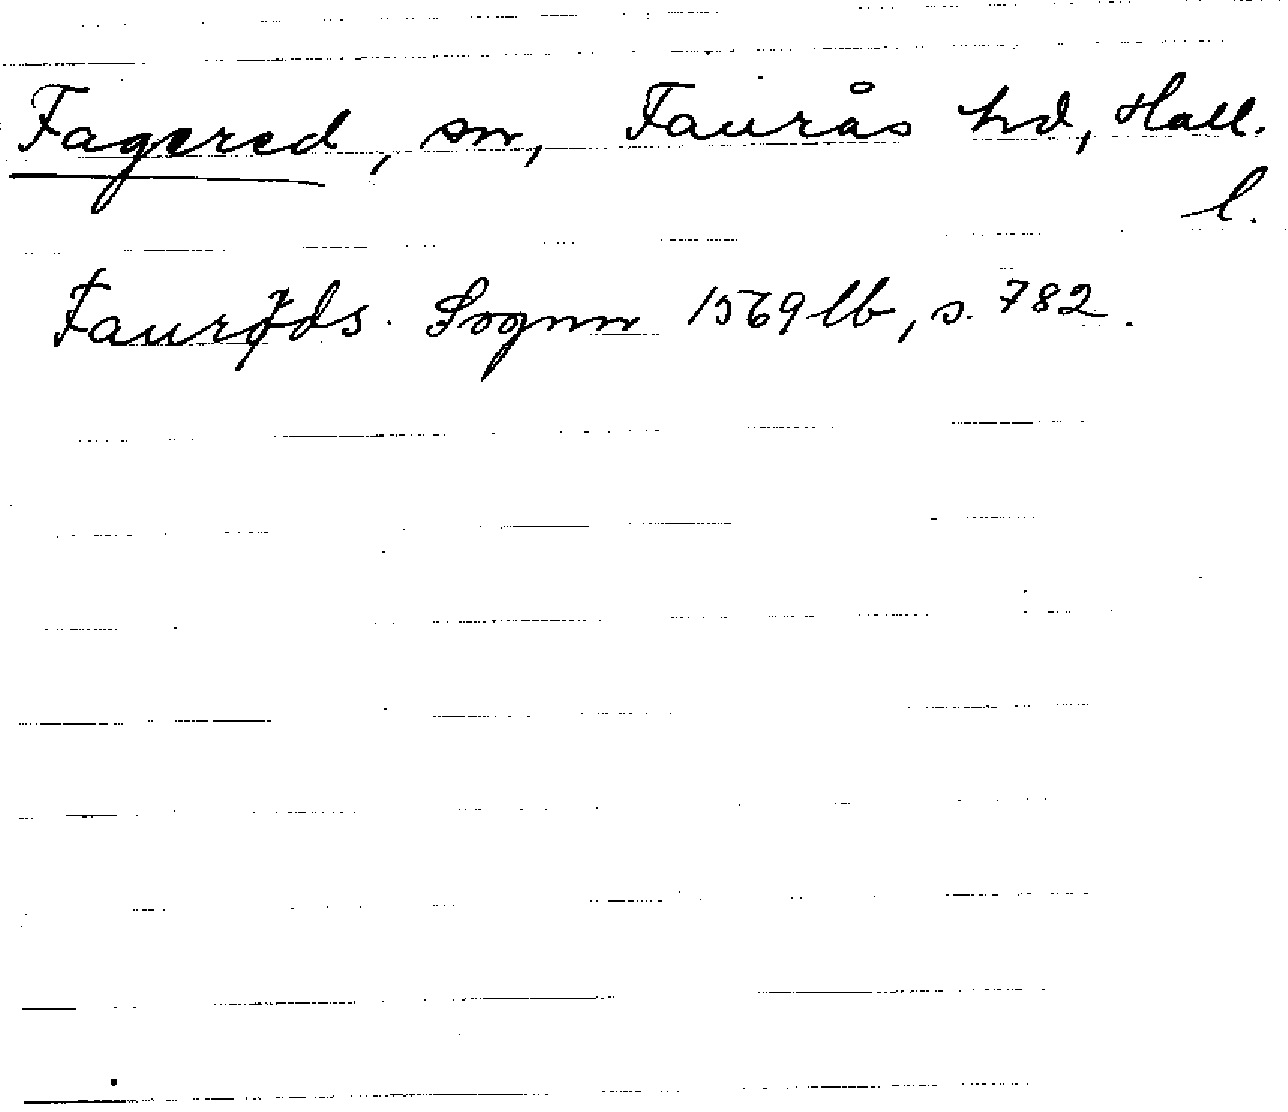 Fagered, sn, Faurås hd, Hall.
l.
Faurøds. Sognn 1569 lb, s. 782.